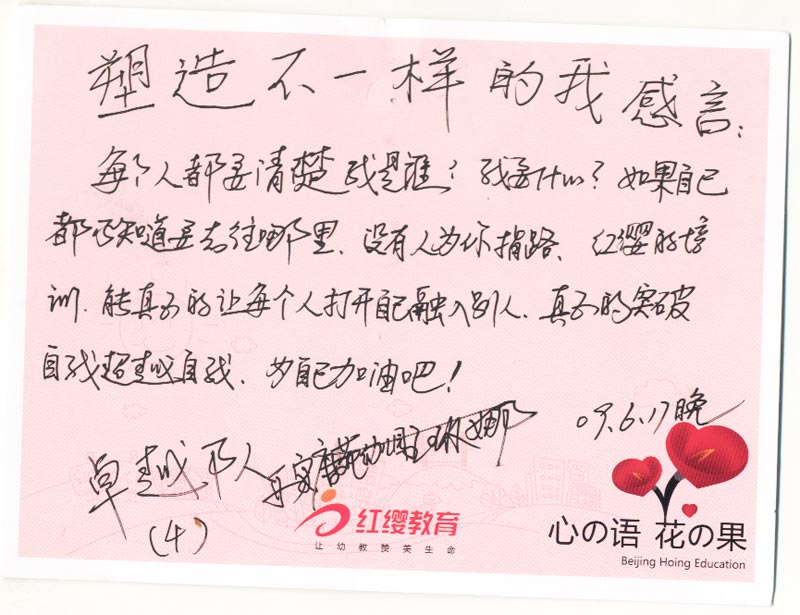 塑造不一样的我感言:
每个人都要清楚我是谁?我要什么?如果自己
都不知道要去往哪里、没有人为你指路、红缨的培
训.能真正的让每个人打开自己融入别人、真正的突破
自我超越自我、为自己加油吧!
09.6.17晚
卓越
(4)
红缨教育
让幼教赞美生命
心の语 花の果
Beijing Hoing Education